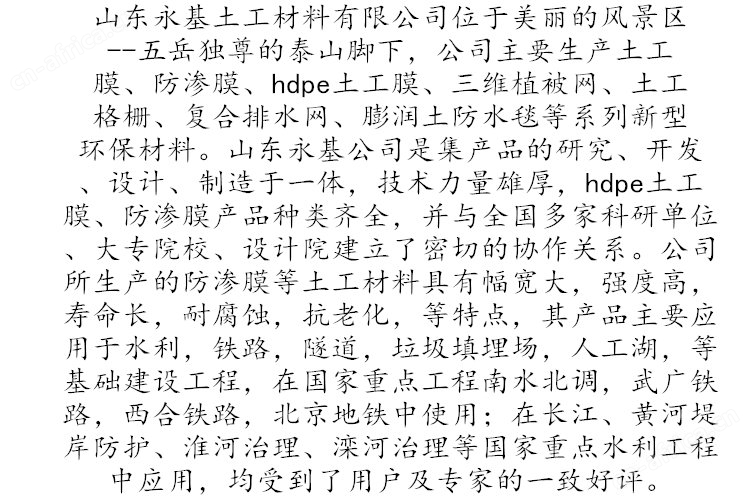 山东永基土工材料有限公司位于美丽的风景区
--五岳独尊的泰山脚下，公司主要生产土工
膜、防渗膜、hdpe土工膜、三维植被网、土工
格栅、复合排水网、膨润土防水毯等系列新型
环保材料。山东永基公司是集产品的研究、开发
、设计、制造于一体，技术力量雄厚，hdpe土工
膜、防渗膜产品种类齐全，并与全国多家科研单位
、大专院校、设计院建立了密切的协作关系。公司
所生产的防渗膜等土工材料具有幅宽大，强度高，
寿命长，耐腐蚀，抗老化，等特点，其产品主要应
用于水利，铁路，隧道，垃圾填埋场，人工湖，等
基础建设工程，在国家重点工程南水北调，武广铁
路，西合铁路，北京地铁中使用；在长江、黄河堤
岸防护、淮河治理、滦河治理等国家重点水利工程
中应用，均受到了用户及专家的一致好评。